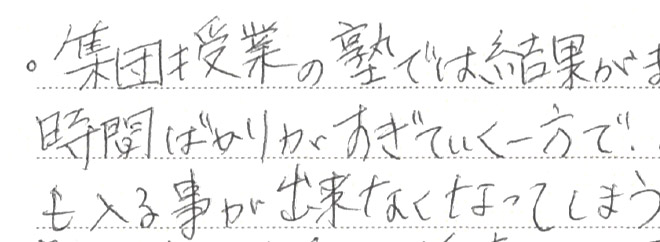 。集団授業の塾では結果がま
時間ばかりがすぎていく一方で、
も入る事が出来なくなってしまう